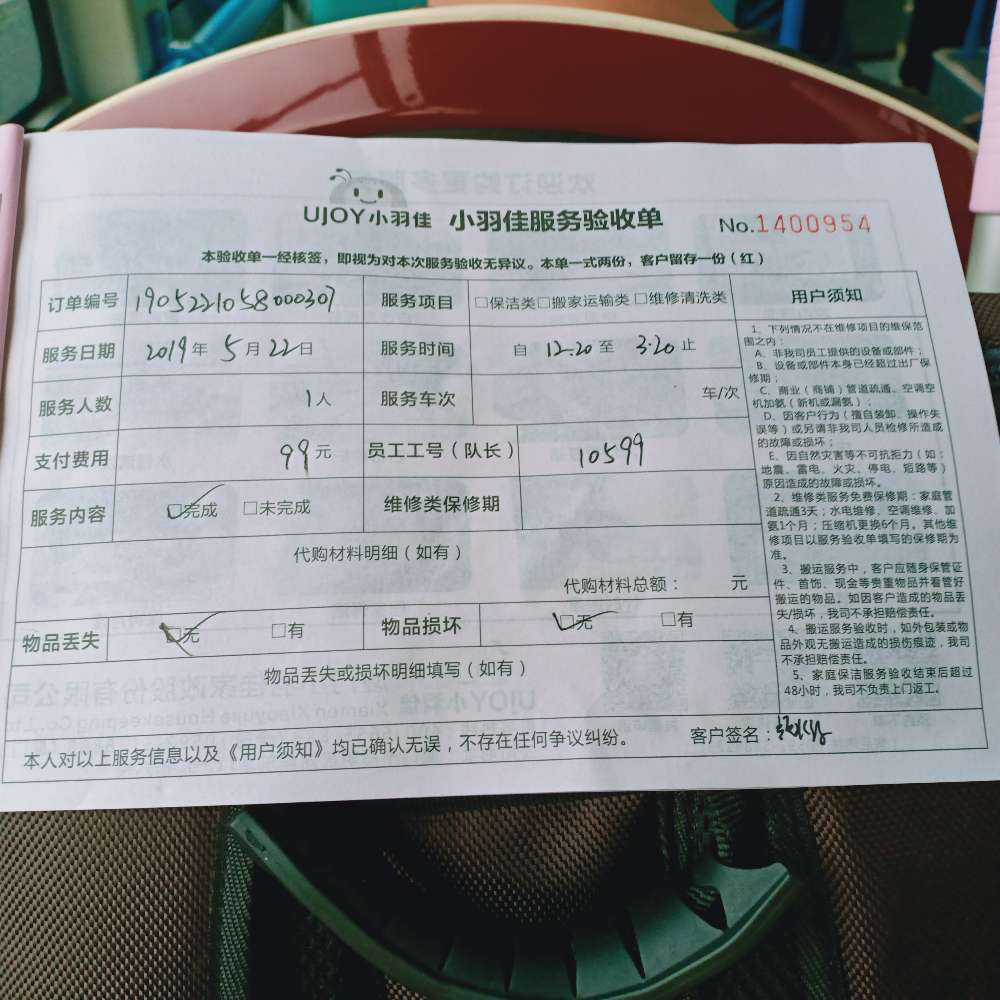 UJOY小羽佳 小羽佳服务验收单 No.1400954
本验收单一经核签，即视为对本次服务验收无异议。本单一式两份，客户留存一份（红）
订单编号 1905221058000307 服务项目 □保洁类□搬家运输类□维修清洗类
服务日期 2019年 5月 22日 服务时间 自 12.20 至 3.20 止
服务人数 1人 服务车次 车/次
支付费用 99元 员工工号（队长） 10599
服务内容 ☑完成 □未完成 维修类保修期
代购材料明细（如有）
代购材料总额： 元
物品丢失 ☑无 □有 物品损坏 ☑无 □有
物品丢失或损坏明细填写（如有）
本人对以上服务信息以及《用户须知》均已确认无误，不存在任何争议纠纷。 客户签名：
用户须知
1、下列情况不在维修项目的维保范
围之内：
A、非我司员工提供的设备或部件；
B、设备或部件本身已经超过出厂保
修期；
C、商业（商铺）管道疏通、空调空
机加氨（新机或漏氨）；
D、因客户行为（擅自装卸、操作失
误等）或另请非我司人员检修所造成
的故障或损坏；
E、因自然灾害等不可抗拒力（如：
地震、雷电、火灾、停电、短路等）
原因造成的故障或损坏。
2、维修类服务免费保修期：家庭管
道疏通3天；水电维修、空调维修、加
氨1个月；压缩机更换6个月。其他维
修项目以服务验收单填写的保修期为
准。
3、搬运服务中，客户应随身保管证
件、首饰、现金等贵重物品并看管好
搬运的物品。如因客户造成的物品丢
失/损坏，我司不承担赔偿责任。
4、搬运服务验收时，如外包装或物
品外观无搬运造成的损伤痕迹，我司
不承担赔偿责任。
5、家庭保洁服务验收结束后超过
48小时，我司不负责上门返工。